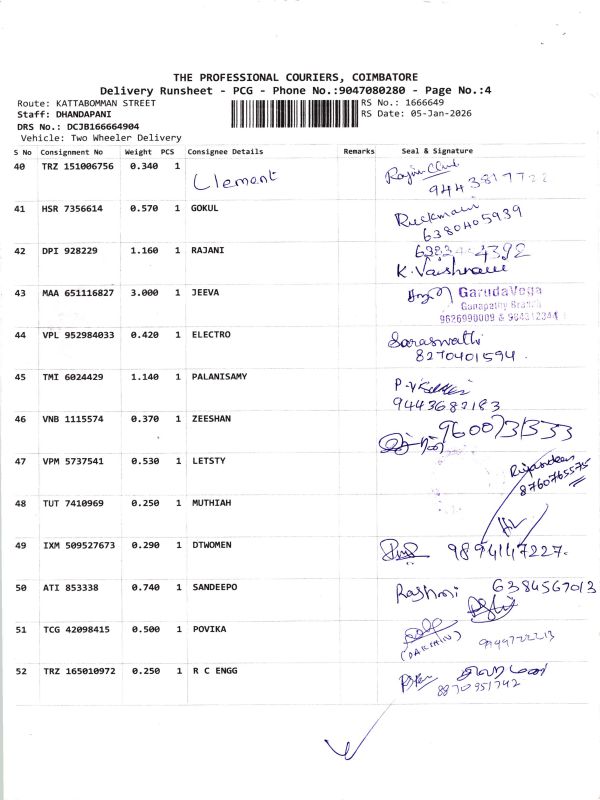 THE PROFESSIONAL COURIERS, COIMBATORE
Delivery Runsheet - PCG - Phone No.:9047080280 - Page No.:4
Route: KATTABOMMAN STREET
RS No.: 1666649
Staff: DHANDAPANI
RS Date: 05-Jan-2026
DRS No.: DCJB166664904
Vehicle: Two Wheeler Delivery
S No Consignment No Weight PCS Consignee Details Remarks Seal & Signature
40 TRZ 151006756 0.340 1 Clement
9443817722
41 HSR 7356614 0.570 1 GOKUL Ruckmani
6380405939
42 DPI 928229 1.160 1 RAJANI
K. Vaishnavi
43 MAA 651116827 3.000 1 JEEVA GarudaVega
Ganapathy Branch
44 VPL 952984033 0.420 1 ELECTRO Saraswathi
8270401594.
45 TMI 6024429 1.140 1 PALANISAMY
9443682183
46 VNB 1115574 0.370 1 ZEESHAN 9600731333
47 VPM 5737541 0.530 1 LETSTY
8760765575
48 TUT 7410969 0.250 1 MUTHIAH
49 IXM 509527673 0.290 1 DTWOMEN 9894147227.
50 ATI 853338 0.740 1 SANDEEPO Rashmi 6384567013
51 TCG 42098415 0.500 1 POVIKA
52 TRZ 165010972 0.250 1 R C ENGG
8870951742